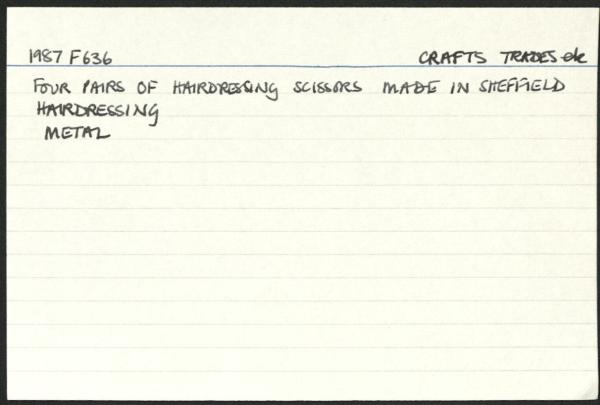 1987 F636 CRAFTS TRADES etc
FOUR PAIRS OF HAIRDRESSING SCISSORS MADE IN SHEFFIELD
HAIRDRESSING
METAL